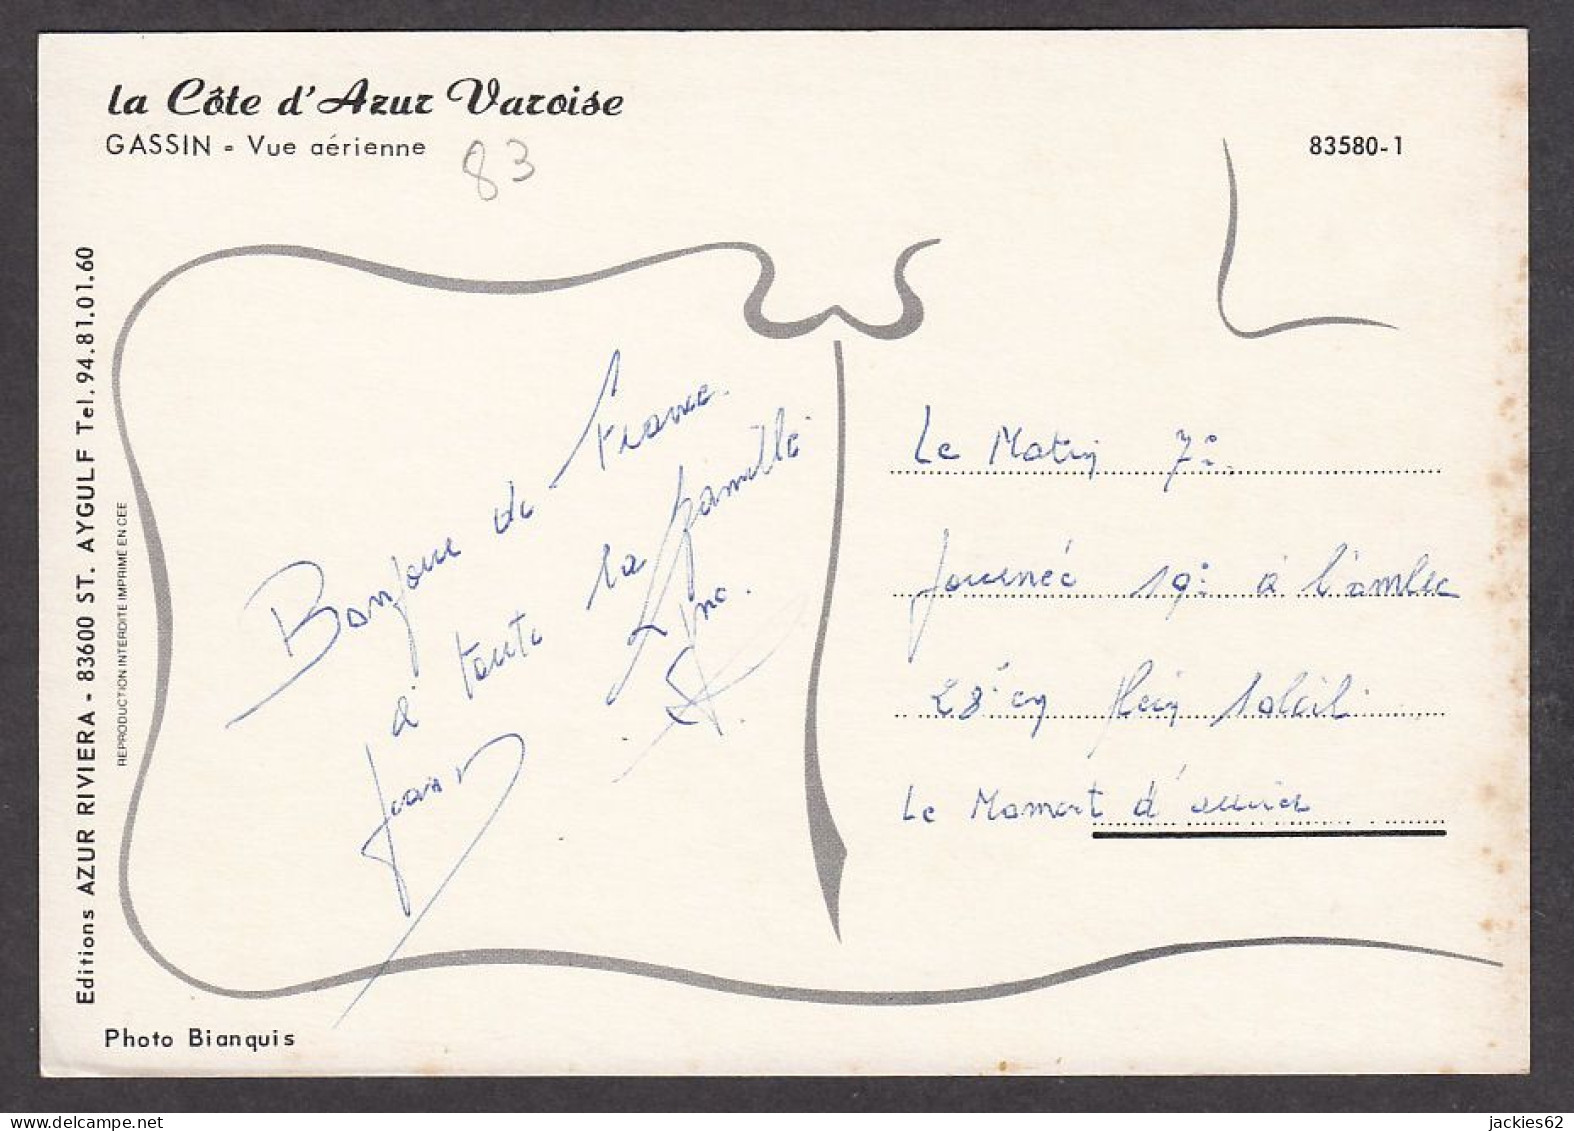 la Côte d'Azur Varoise
GASSIN - Vue aérienne
83
83580-1
Editions AZUR RIVIERA - 83600 ST. AYGULF Tel. 94.81.01.60
REPRODUCTION INTERDITE IMPRIME EN CEE
Bonjour de France.
à toute la famille
Jean
Le Matin 7°
Journée 19° à l'ombre
28° en plein soleil
Le Moment d'arrivée
Photo Bianquis
jackies62